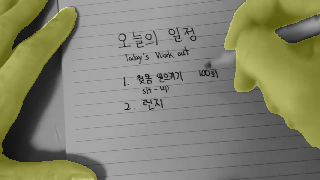 오늘의 일정
Today's Work out
1. 윗몸 일으키기 100회
sit-up
2. 런지